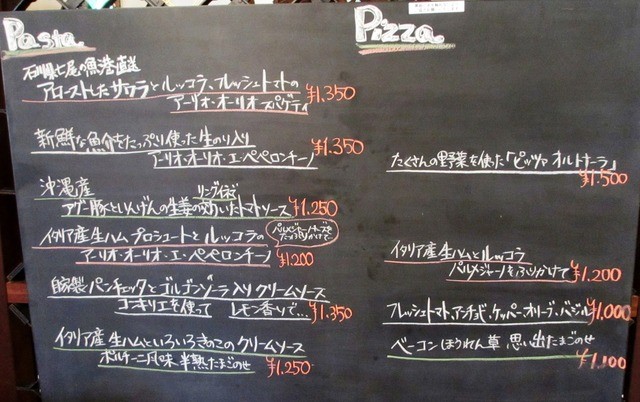 Pasta
石川県七尾の魚港直送
アローストしたサワラとルッコラ、フレッシュトマトの
アーリオ・オーリオスパゲティ ¥1.350
新鮮な魚介をたっぷり使った生のり入り
アーリオ・オーリオ・エ・ペペロンチーノ ¥1.350
沖縄産
アグー豚といんげんの生姜の効いたトマトソース ¥1.250
イタリア産生ハムプロシュートとルッコラの
アーリオ・オーリオ・エ・ペペロンチーノ ¥1.200
自家製パンチェッタとゴルゴンゾーラ入りクリームソース
コンキリエを使って レモン香りで… ¥1.350
イタリア産生ハムといろいろきのこのクリームソース
ポルチーニ風味、半熟たまごのせ ¥1.250
Pizza
たくさんの野菜を使った「ピッツァ オルトナーラ」
¥1.500
イタリア産生ハムとルッコラ
パルメジャーノをふりかけて ¥1.200
フレッシュトマト、アンチョビ、ケッパー、オリーブ、バジル ¥1.000
ベーコンほうれん草、思い出たまごのせ
¥1.100